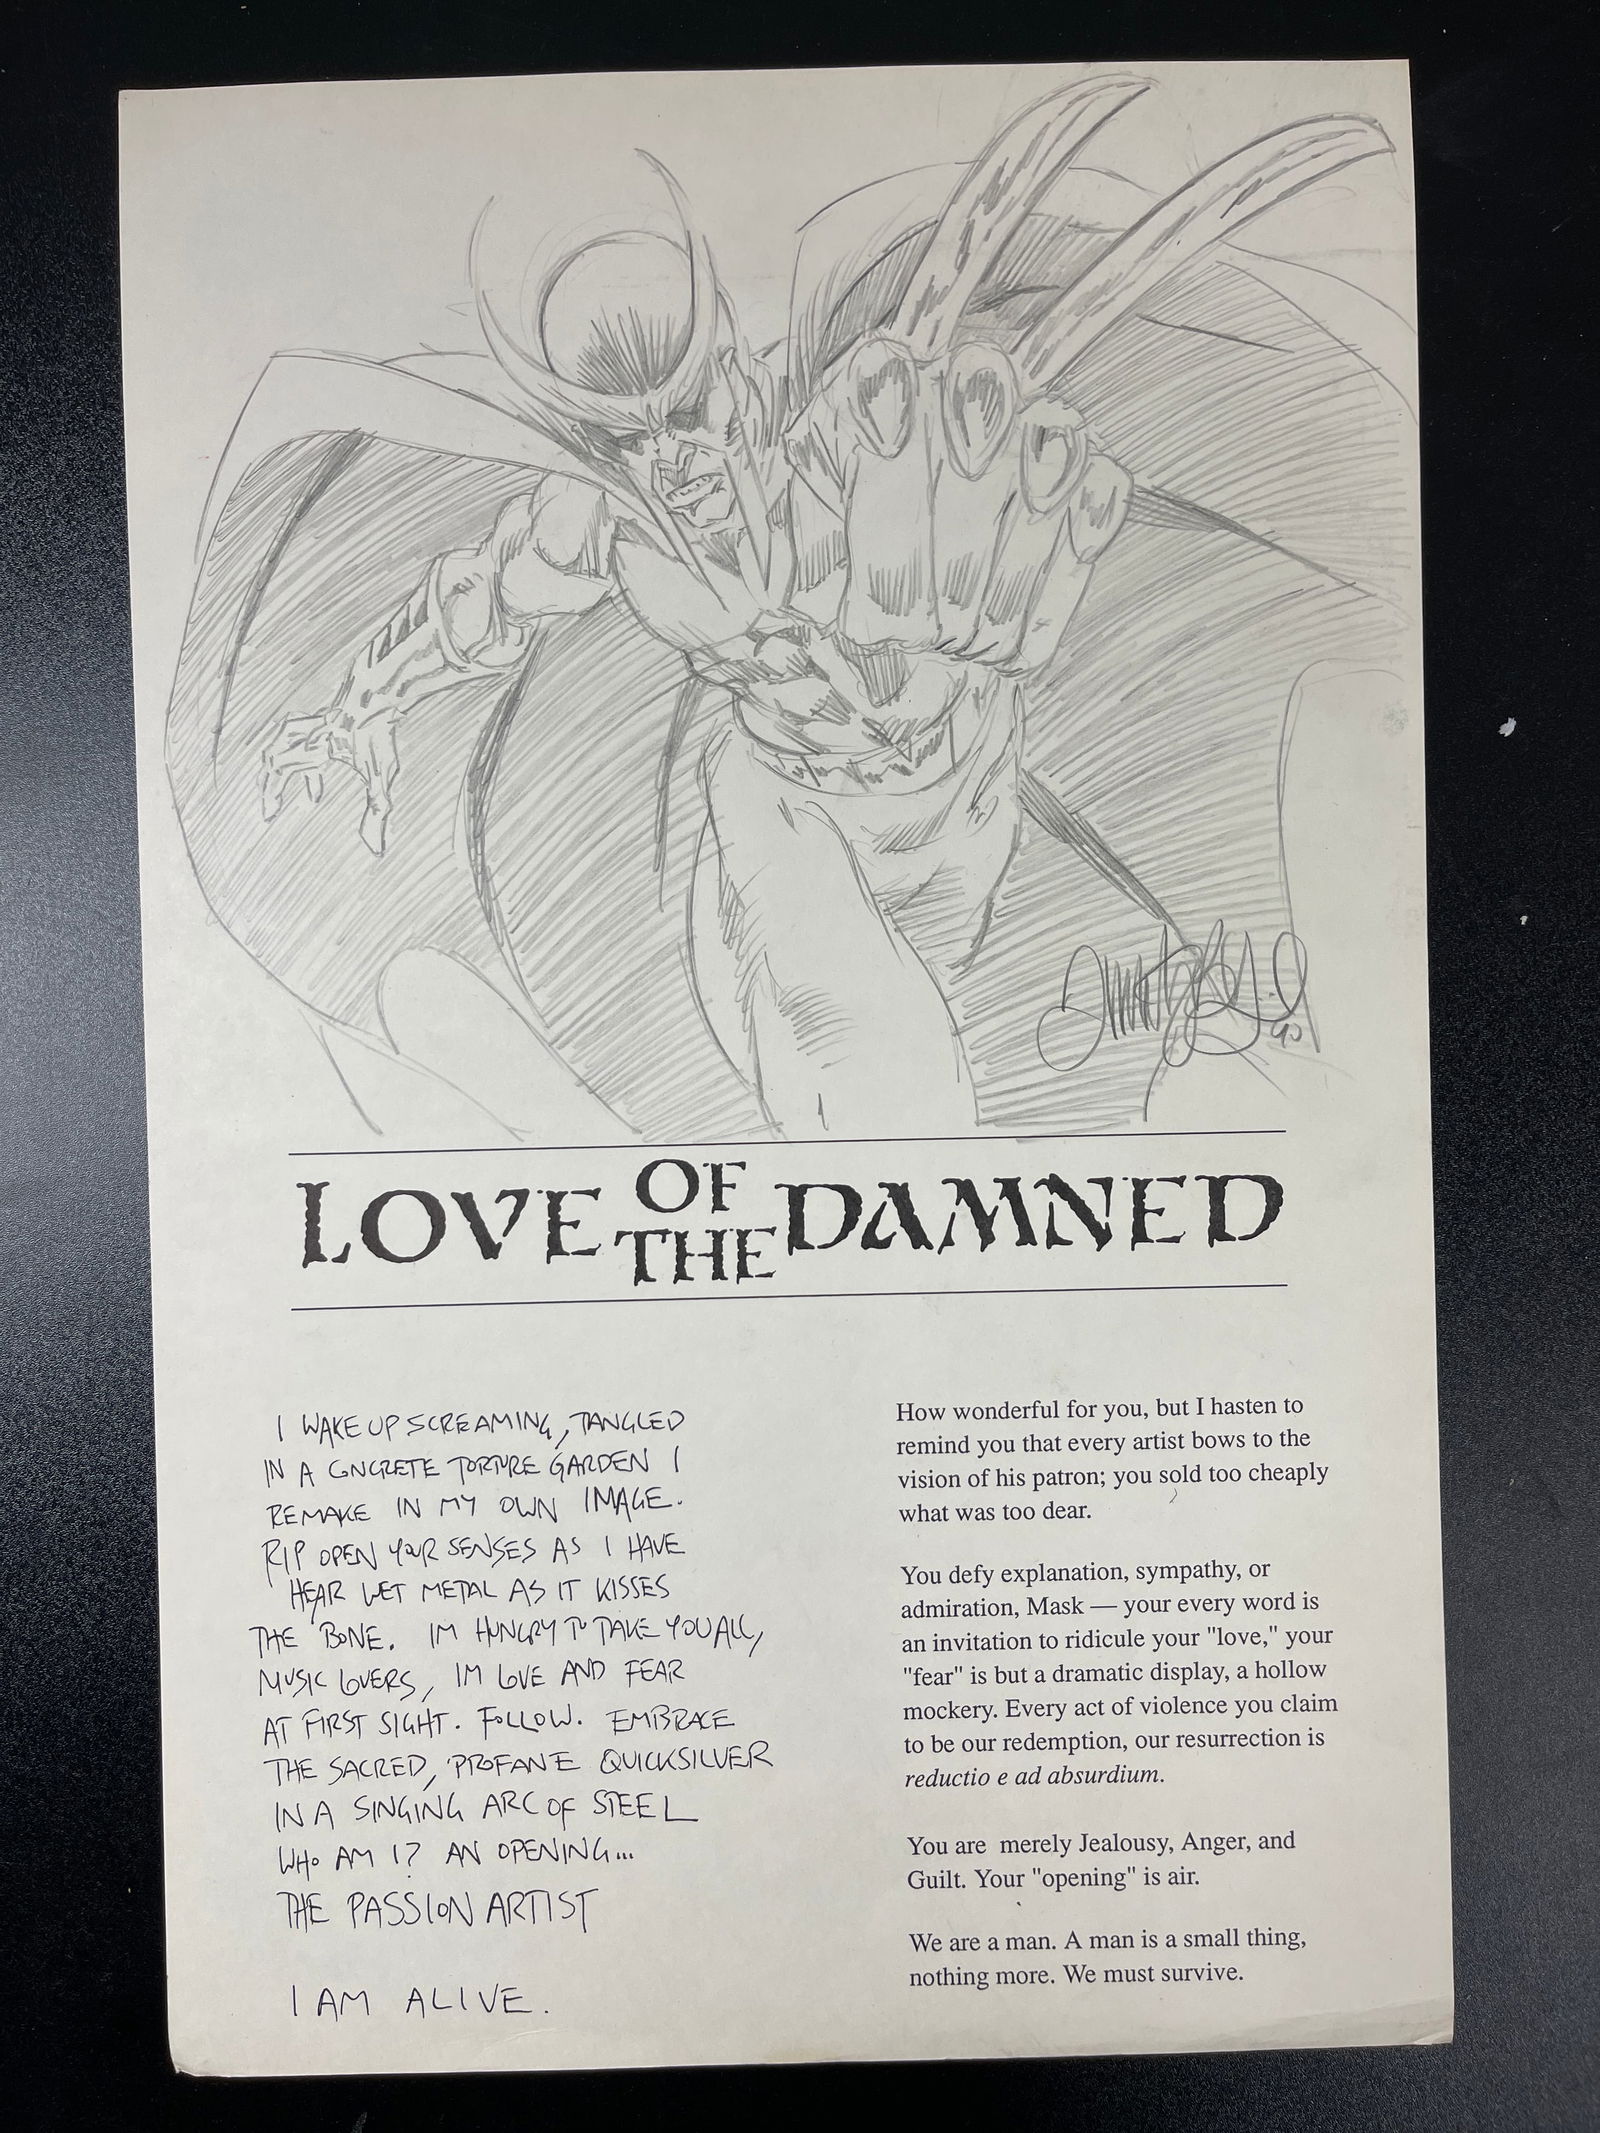 90
LOVE OF THE DAMNED
I WAKE UP SCREAMING, TANGLED
IN A CONCRETE TORTURE GARDEN I
REMAKE IN MY OWN IMAGE.
RIP OPEN YOUR SENSES AS I HAVE
HEAR WET METAL AS IT KISSES
THE BONE. IM HUNGRY TO TAKE YOU ALL,
MUSIC LOVERS, IM LOVE AND FEAR
AT FIRST SIGHT. FOLLOW. EMBRACE
THE SACRED, PROFANE QUICKSILVER
IN A SINGING ARC OF STEEL
WHO AM I? AN OPENING...
THE PASSION ARTIST
I AM ALIVE.
How wonderful for you, but I hasten to
remind you that every artist bows to the
vision of his patron; you sold too cheaply
what was too dear.
You defy explanation, sympathy, or
admiration, Mask — your every word is
an invitation to ridicule your "love," your
"fear" is but a dramatic display, a hollow
mockery. Every act of violence you claim
to be our redemption, our resurrection is
reductio e ad absurdium.
You are merely Jealousy, Anger, and
Guilt. Your "opening" is air.
We are a man. A man is a small thing,
nothing more. We must survive.